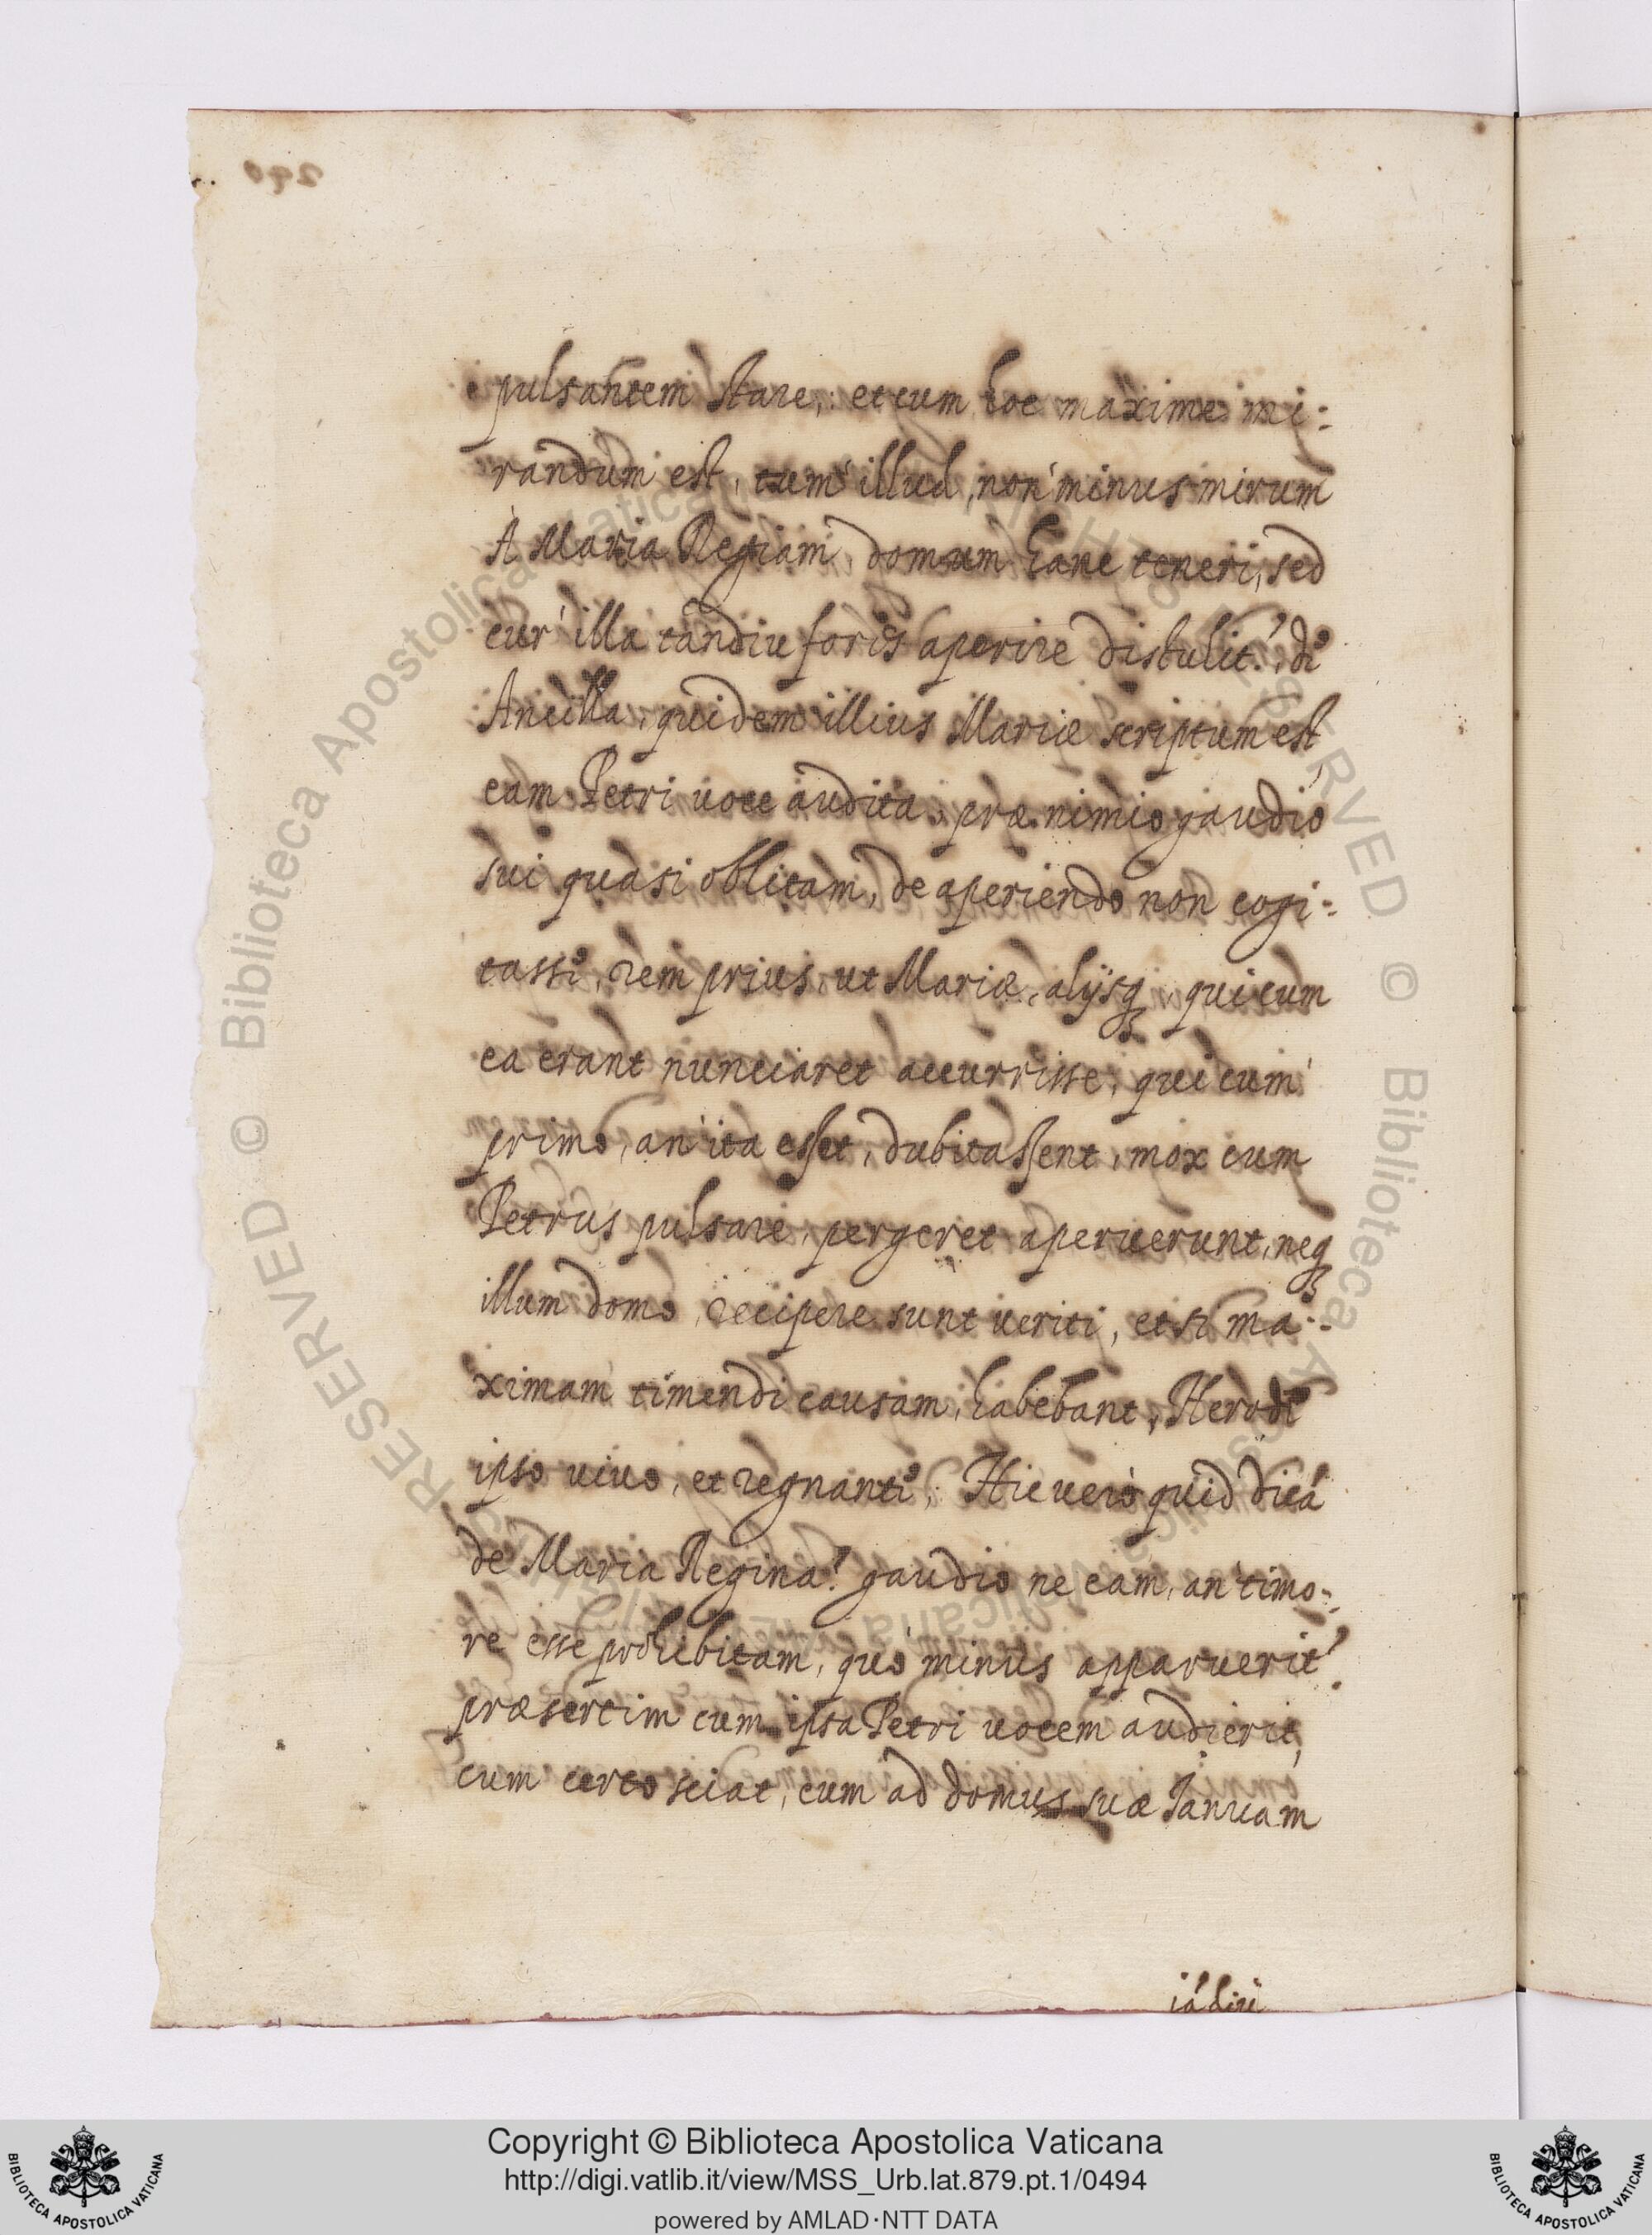 pulsantem stare, et cum hoc maxime mi:
randum est, tum illud, non minus mirum
À Maria Regiam, domum hanc teneri, sed
cur illa tandiu foris aperire distulit? de
Ancilla, quidem illius Mariæ scriptum est
eam Petri uoce audita, præ nimio gaudio
sui quasi oblitam, de aperiendo non cogi:
tasse, rem prius, ut Mariæ, alijsq, qui cum
ea erant nunciaret accurrisse, qui cum
primo, an ita esset, dubitassent, mox cum
Petrus pulsare, pergeret aperuerunt, neq
illum domo, recipere sunt ueriti, etsi ma:
ximam timendi causam, habebant, Herode
ipso uiuo, et regnante, Hic uerò quid dicá
de Maria Regina? gaudio ne eam, an timo:
re esse prohibitam, quò minus apparuerit?
præsertim cum ipsa Petri uocem audierit,
cum certo sciat, eum ad domus suæ Ianuam
iá diu
Copyright © Biblioteca Apostolica Vaticana
http://digi.vatlib.it/view/MSS_Urb.lat.879.pt.1/0494
powered by AMLAD·NTT DATA